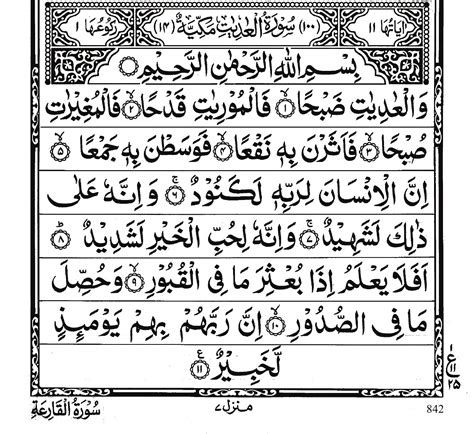 اٰیَاتُهَا ۱۱ (۱۰۰) سُوْرَةُ الْعٰدِیٰتِ مَكِّیَّةٌ (۱۴) رُكُوْعُهَا ۱
بِسْمِ اللّٰهِ الرَّحْمٰنِ الرَّحِیْمِ
وَالْعٰدِیٰتِ ضَبْحًا ۱ فَالْمُوْرِیٰتِ قَدْحًا ۲ فَالْمُغِیْرٰتِ
صُبْحًا ۳ فَاَثَرْنَ بِهٖ نَقْعًا ۴ فَوَسَطْنَ بِهٖ جَمْعًا ۵
اِنَّ الْاِنْسَانَ لِرَبِّهٖ لَكَنُوْدٌ ۶ وَاِنَّهٗ عَلٰی
ذٰلِكَ لَشَهِیْدٌ ۷ وَاِنَّهٗ لِحُبِّ الْخَیْرِ لَشَدِیْدٌ ۸
اَفَلَا یَعْلَمُ اِذَا بُعْثِرَ مَا فِی الْقُبُوْرِ ۹ وَحُصِّلَ
مَا فِی الصُّدُوْرِ ۱۰ اِنَّ رَبَّهُمْ بِهِمْ یَوْمَئِذٍ
لَّخَبِیْرٌ ۱۱
ع ۱ ۱۱ ۲۵
سُوْرَةُ الْقَارِعَةِ منزل ۷ 842